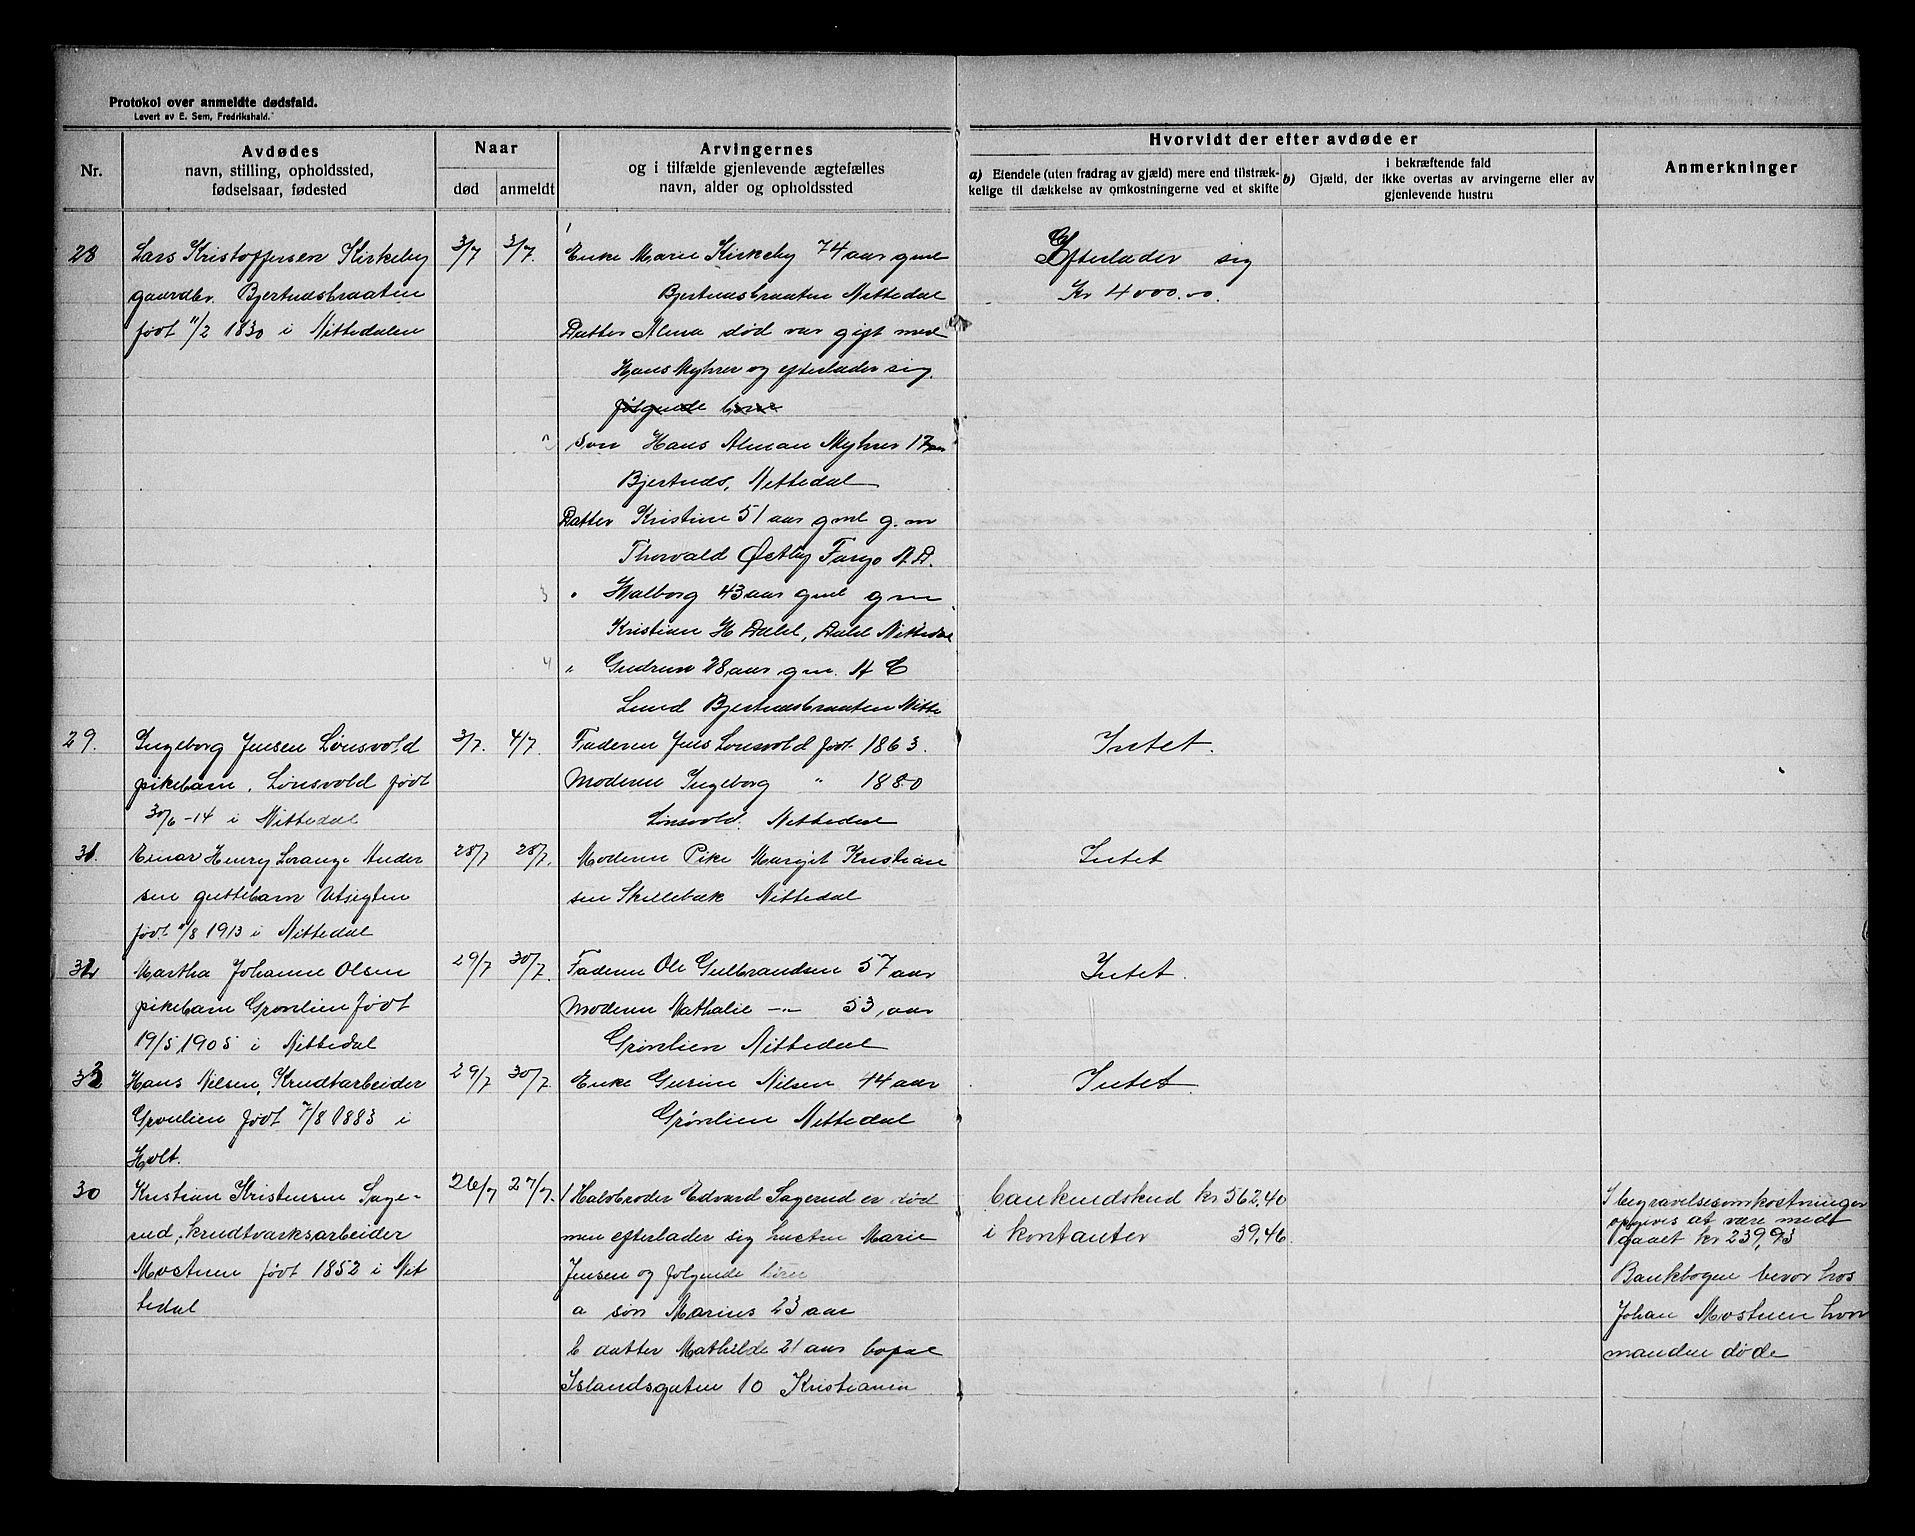 Protokol over anmeldte dødsfald.
Levert av E. Sem, Fredrikshald.
Nr.
Avdødes
navn, stilling, opholdssted,
fødselsaar, fødested
Naar
død
anmeldt
Arvingernes
og i tilfælde gjenlevende ægtefælles
navn, alder og opholdssted
Hvorvidt der efter avdøde er
a) Eiendele (uten fradrag av gjæld) mere end tilstræk-
kelige til dækkelse av omkostningerne ved et skifte
i bekræftende fald
b) Gjæld, der ikke overtas av arvingerne eller av
gjenlevende hustru
Anmerkninger
28
Lars Kristoffersen Kirkeby
gaardbr. Bjertnæsbraaten
født 11/2 1830 i Nittedalen
3/7
3/7.
1
Enke Marie Kirkeby 74 aar gml
Bjertnæsbraaten Nittedal
Datter Alma død var gift med
Hans Myhrer og efterlader sig
følgende børn
søn Hans Alman Myhrer 17 aar
Bjertnæs, Nittedal
Datter Kristine 51 aar gml g.m
Thorvald Østby Fargo N.D.
3 " Halborg 43 aar gml gm
Kristian H Dahl, Dahl Nittedal
4 " Gudrun 28, aar gm. H C
Lund Bjertnæsbraaten Nitte
Efterlader sig
Kr 4000.00.
29.
Ingeborg Jensen Lønsvold
pikebarn, Lønsvold født
30/6-14 i Nittedal
3/7.
4/7.
Faderen Jens Lønsvold født 1863.
Moderen Ingeborg " 1880
Lønsvold. Nittedal
Intet.
31.
Einar Henry Lorange Ander
sen guttebarn Utsigten
født 11/8 1913 i Nittedal
28/7
28/7.
Moderen Pike Margit Kristian
sen Skillebæk Nittedal
Intet
32
Martha Johanne Olsen
pikebarn Grønlien født
19/5 1905 i Nittedal
29/7
30/7.
Faderen Ole Gulbrandsen 57 aar
Moderen Nathalie -"- 53, aar
Grønlien Nittedal
Intet.
33
Hans Nilsen, Krudtarbeider
Grønlien født 7/8 1883 i
Holt.
29/7
30/7.
Enke Gusine Nilsen 44 aar
Grønlien Nittedal
Intet.
30
Kristian Kristensen Sage-
rud, krudtværksarbeider
Mostuen født 1852 i Nit
tedal
26/7
27/7.
1 Halvbroder Edvard Sagerud er død
men efterlader sig hustru Marie
Jensen og følgende børn
a søn Marius 23 aar
b datter Mathilde 21 aar bopæl
Islandsgaten 10 Kristiania
bankindskud kr 562,40
i kontanter 39,46.
I begravelsesomkostninger
opgives at være med
gaaet kr 239,93
Bankbogen beror hos
Johan Mostuen hvor
manden døde